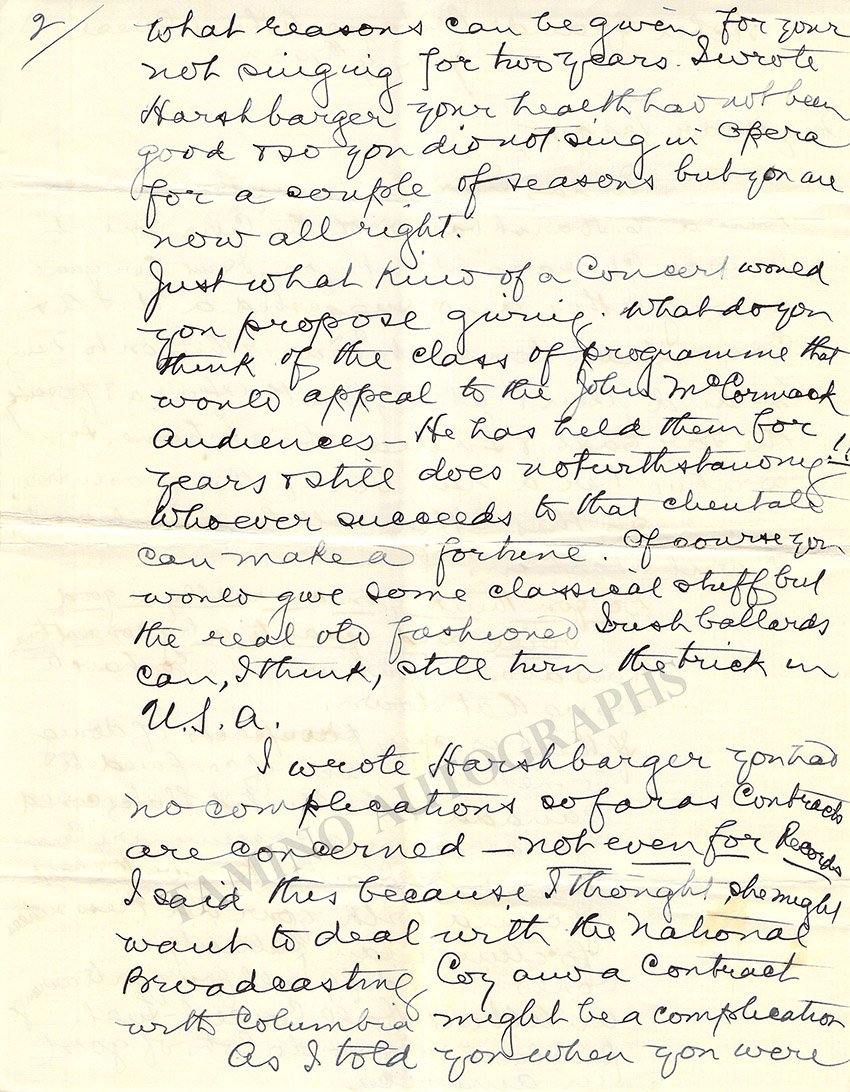 2/
What reasons can be given for your
not singing for two years. I wrote
Harshbarger your health had not been
good & so you did not sing in Opera
for a couple of seasons but you are
now all right.
Just what kind of a Concert would
you propose giving. What do you
think of the class of programme that
would appeal to the John McCormack
Audiences – He has held them for
years & still does notwithstanding –!!
Whoever succeeds to that clientale
can make a fortune. Of course you
would give some classical stuff but
the real old fashioned Irish ballards
can, I think, still turn the trick in
U.S.A.
I wrote Harshbarger you had
no complications so far as Contracts
are concerned – not even for Records
I said this because I thought she might
want to deal with the National
Broadcasting Coy and a Contract
with Columbia might be a complication
As I told you when you were
TAMINO AUTOGRAPHS